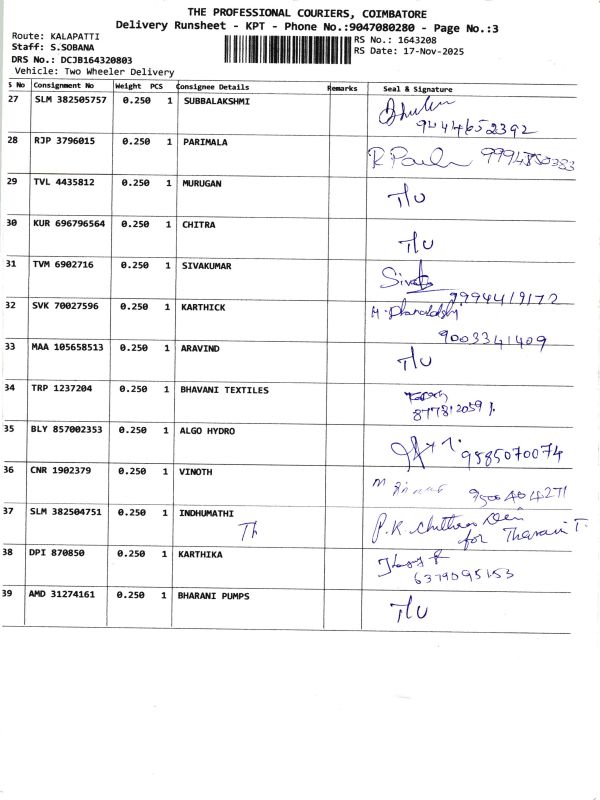 THE PROFESSIONAL COURIERS, COIMBATORE
Delivery Runsheet - KPT - Phone No.:9047080280 - Page No.:3
Route: KALAPATTI
RS No.: 1643208
Staff: S.SOBANA
RS Date: 17-Nov-2025
DRS No.: DCJB164320803
Vehicle: Two Wheeler Delivery
S No Consignment No Weight PCS Consignee Details Remarks Seal & Signature
27 SLM 382505757 0.250 1 SUBBALAKSHMI
9444652392
28 RJP 3796015 0.250 1 PARIMALA
29 TVL 4435812 0.250 1 MURUGAN T/U
30 KUR 696796564 0.250 1 CHITRA T/U
31 TVM 6902716 0.250 1 SIVAKUMAR
9994419172
32 SVK 70027596 0.250 1 KARTHICK
9003341409
33 MAA 105658513 0.250 1 ARAVIND T/U
34 TRP 1237204 0.250 1 BHAVANI TEXTILES
35 BLY 857002353 0.250 1 ALGO HYDRO
9585070074
36 CNR 1902379 0.250 1 VINOTH
9500404271
37 SLM 382504751 0.250 1 INDHUMATHI P.K
Th for Tharani T.
38 DPI 870850 0.250 1 KARTHIKA
6379095153
39 AMD 31274161 0.250 1 BHARANI PUMPS T/U